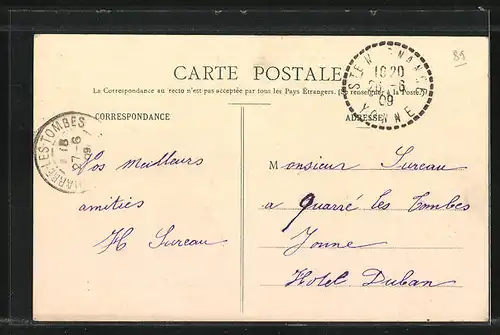 89
CARTE POSTALE
La Correspondance au recto n'est pas acceptée par tous les Pays Étrangers. (Se renseigner à la Poste)
CORRESPONDANCE
ADRESSE
10 20
26 -6
09
YONNE
QUARRÉ-LES-TOMBES
27-6
09
Vos meilleurs
amitiés
H Sureau
Monsieur Sureau
a Quarré les Tombes
Yonne
Hotel Duban